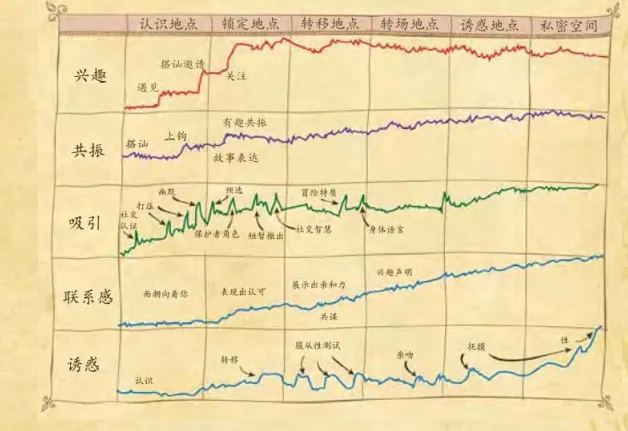 认识地点 锁定地点 转移地点 转场地点 诱惑地点 私密空间
兴趣
遇见
搭讪邀请
关注
共振
搭讪
上钩
有趣共振
故事表达
吸引
社交
认证
打压
幽默
预选
保护者角色
短暂推出
社交智慧
冒险特质
身体语言
联系感
面朝向着你
表现出认可
展示出亲和力
共谋
兴趣声明
诱惑
认识
转移
服从性测试
亲吻
抚摸
性